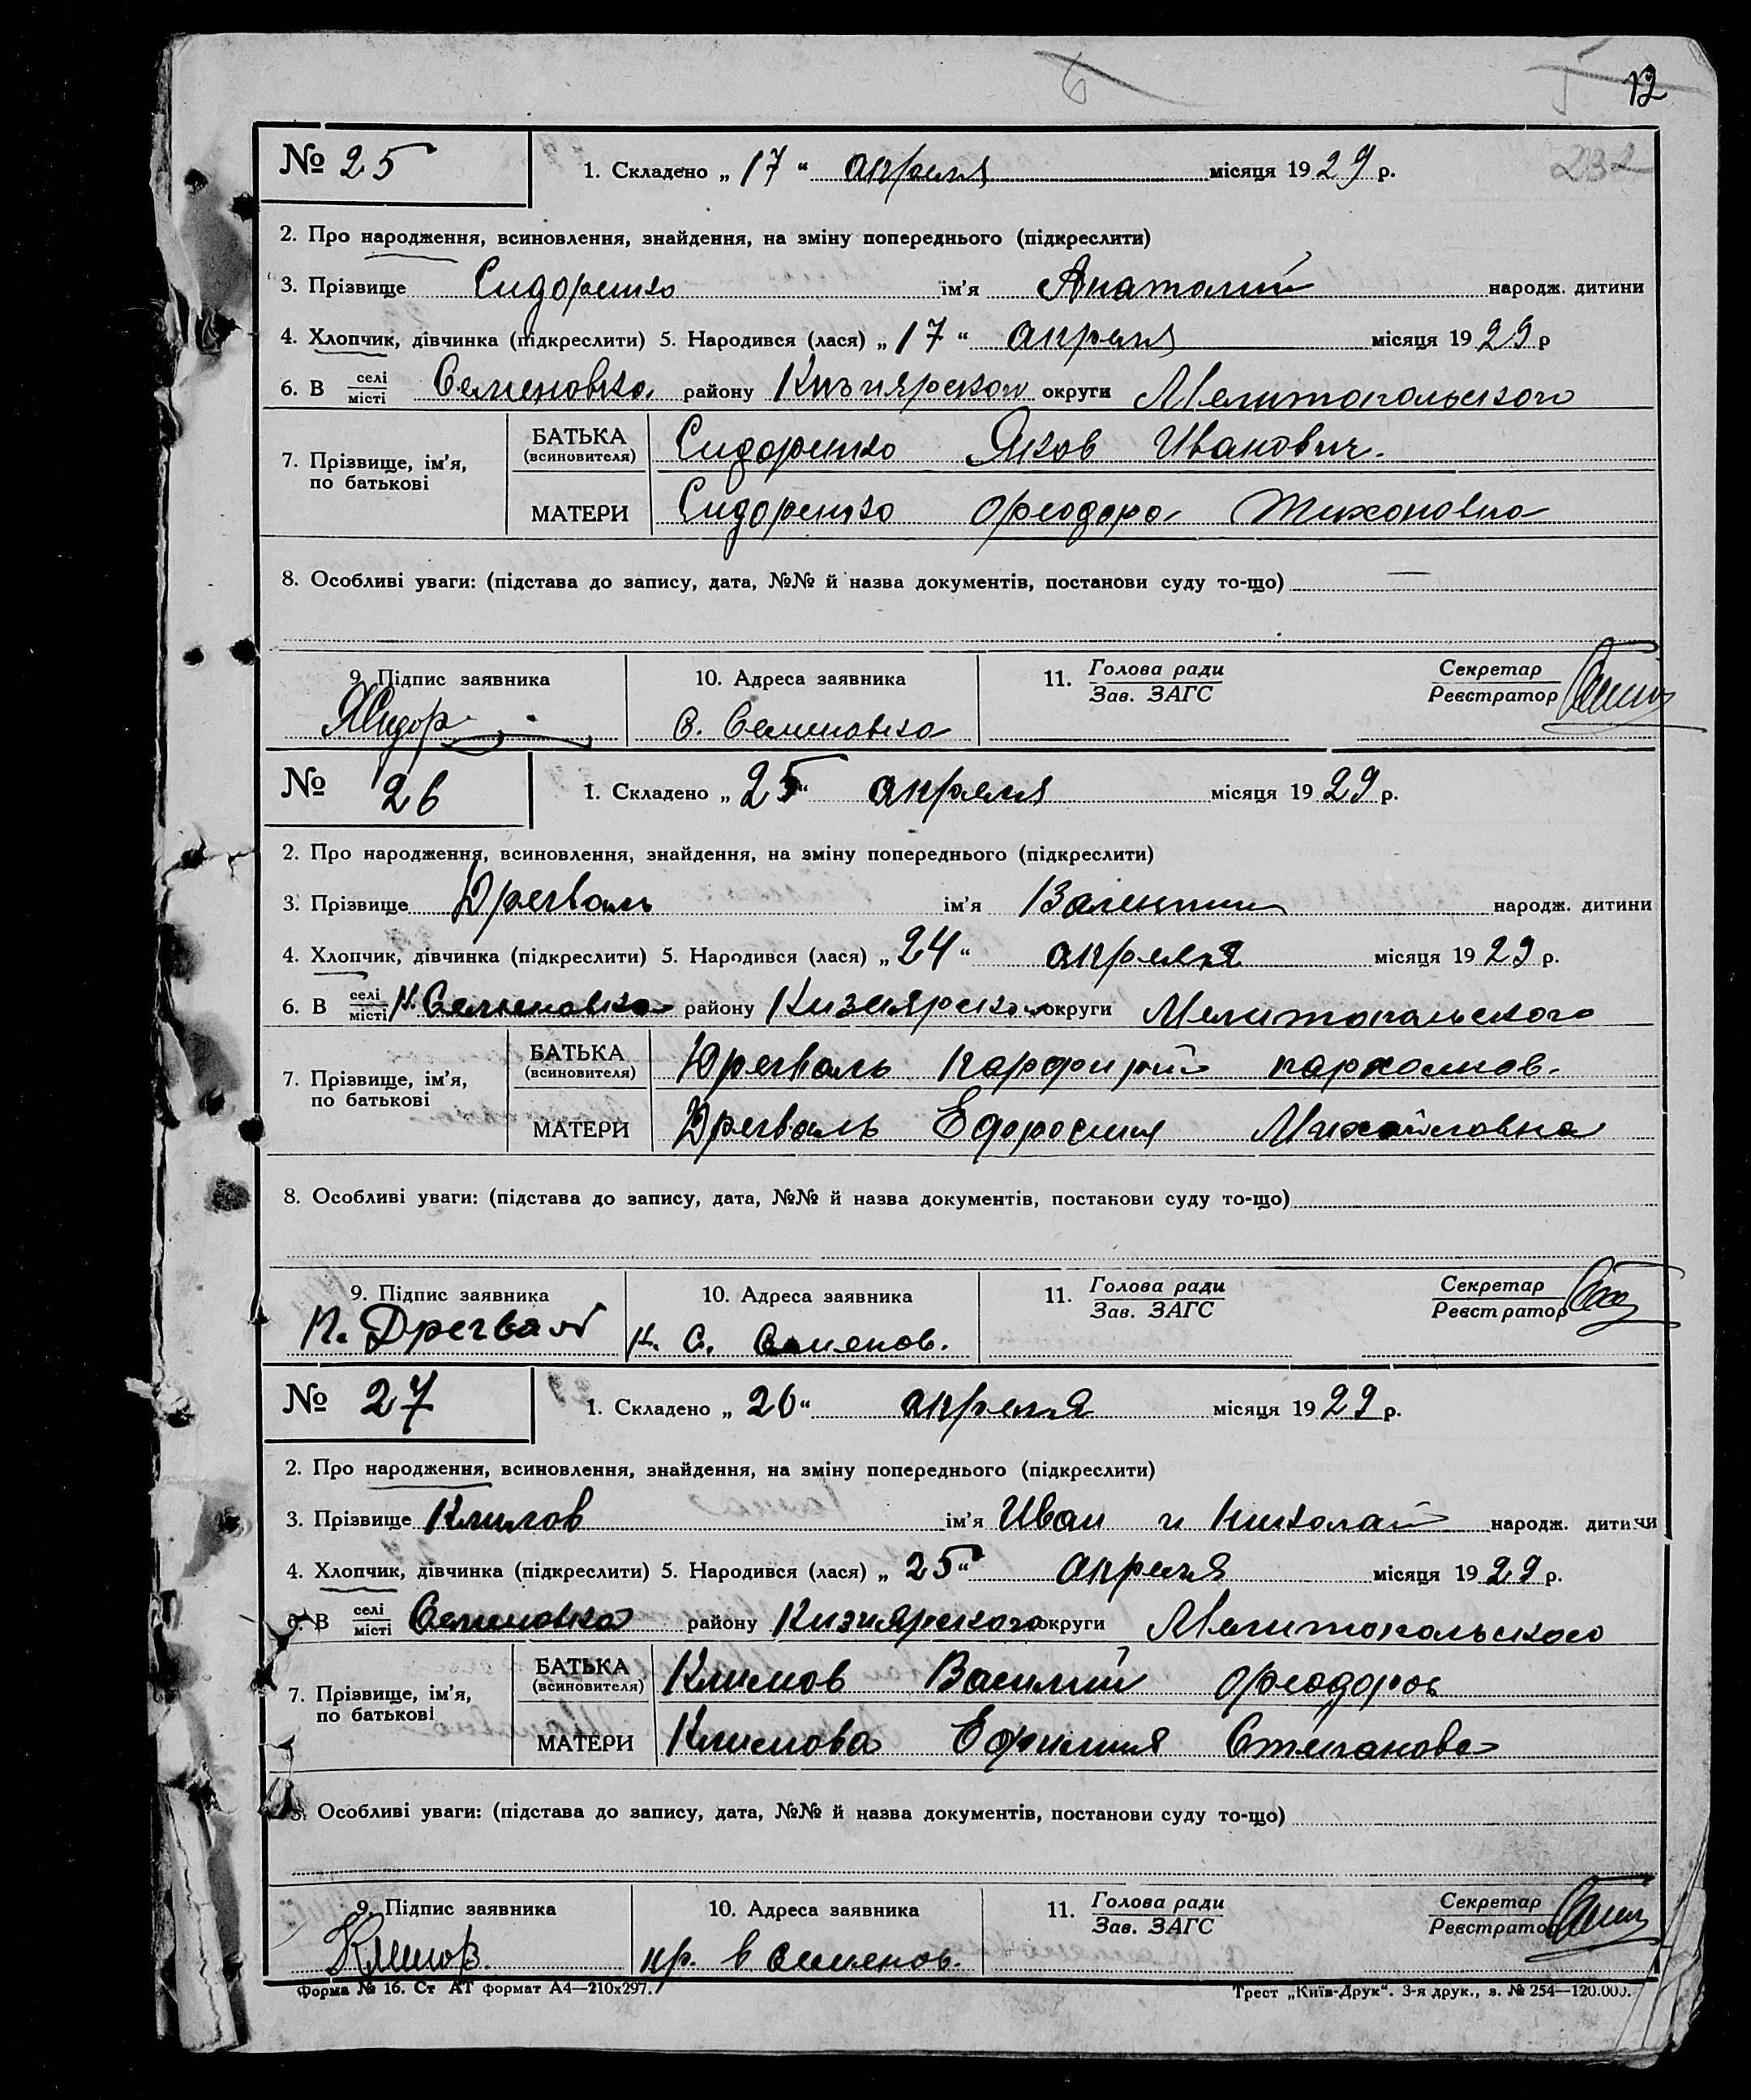 6
12
№ 25
1. Складено „ 17 “ апреля місяця 19 29 р.
232
2. Про народження, всиновлення, знайдення, на зміну попереднього (підкреслити)
3. Прізвище Сидоренко ім’я Анатолий народж. дитини
4. Хлопчик, дівчинка (підкреслити) 5. Народився (лася) „ 17 “ апреля місяця 19 29 р
6. В селі місті Семеновка району Кизиярского округи Мелитопольского
7. Прізвище, ім’я, по батькові
БАТЬКА (всиновителя) Сидоренко Яков Иванович.
МАТЕРИ Сидоренко Феодора Тихоновна
8. Особливі уваги: (підстава до запису, дата, №№ й назва документів, постанови суду то-що) —
9. Підпис заявника 10. Адреса заявника 11. Голова ради Зав. ЗАГС Секретар Реєстратор
ЯСидор С. Семеновка
№ 26
1. Складено „ 25 “ апреля місяця 19 29 р.
2. Про народження, всиновлення, знайдення, на зміну попереднього (підкреслити)
3. Прізвище Дрегваль ім’я Валентин народж. дитини
4. Хлопчик, дівчинка (підкреслити) 5. Народився (лася) „ 24 “ апреля місяця 19 29 р.
6. В селі місті К. Семеновка району Кизиярского округи Мелитопольского
7. Прізвище, ім’я, по батькові
БАТЬКА (всиновителя) Дрегваль Парфирий пархомов.
МАТЕРИ Дрегваль Ефросиния Михайловна
8. Особливі уваги: (підстава до запису, дата, №№ й назва документів, постанови суду то-що)
9. Підпис заявника 10. Адреса заявника 11. Голова ради Зав. ЗАГС Секретар Реєстратор
П. Дрегваль К. С. Семенов.
№ 27
1. Складено „ 26 “ апреля місяця 19 29 р.
2. Про народження, всиновлення, знайдення, на зміну попереднього (підкреслити)
3. Прізвище Климов ім’я Иван и Николай народж. дитини
4. Хлопчик, дівчинка (підкреслити) 5. Народився (лася) „ 25 “ апреля місяця 19 29 р.
6. В селі місті Семеновка району Кизиярского округи Мелитопольского
7. Прізвище, ім’я, по батькові
БАТЬКА (всиновителя) Климов Василий Феодоров
МАТЕРИ Климова Ефимия Степанова
8. Особливі уваги: (підстава до запису, дата, №№ й назва документів, постанови суду то-що)
9. Підпис заявника 10. Адреса заявника 11. Голова ради Зав. ЗАГС Секретар Реєстратор
Климов. кр. в Семенов.
Форма № 16. Ст АТ формат А4—210x297. Трест „Київ-Друк“. 3-я друк., з. № 254—120.000.